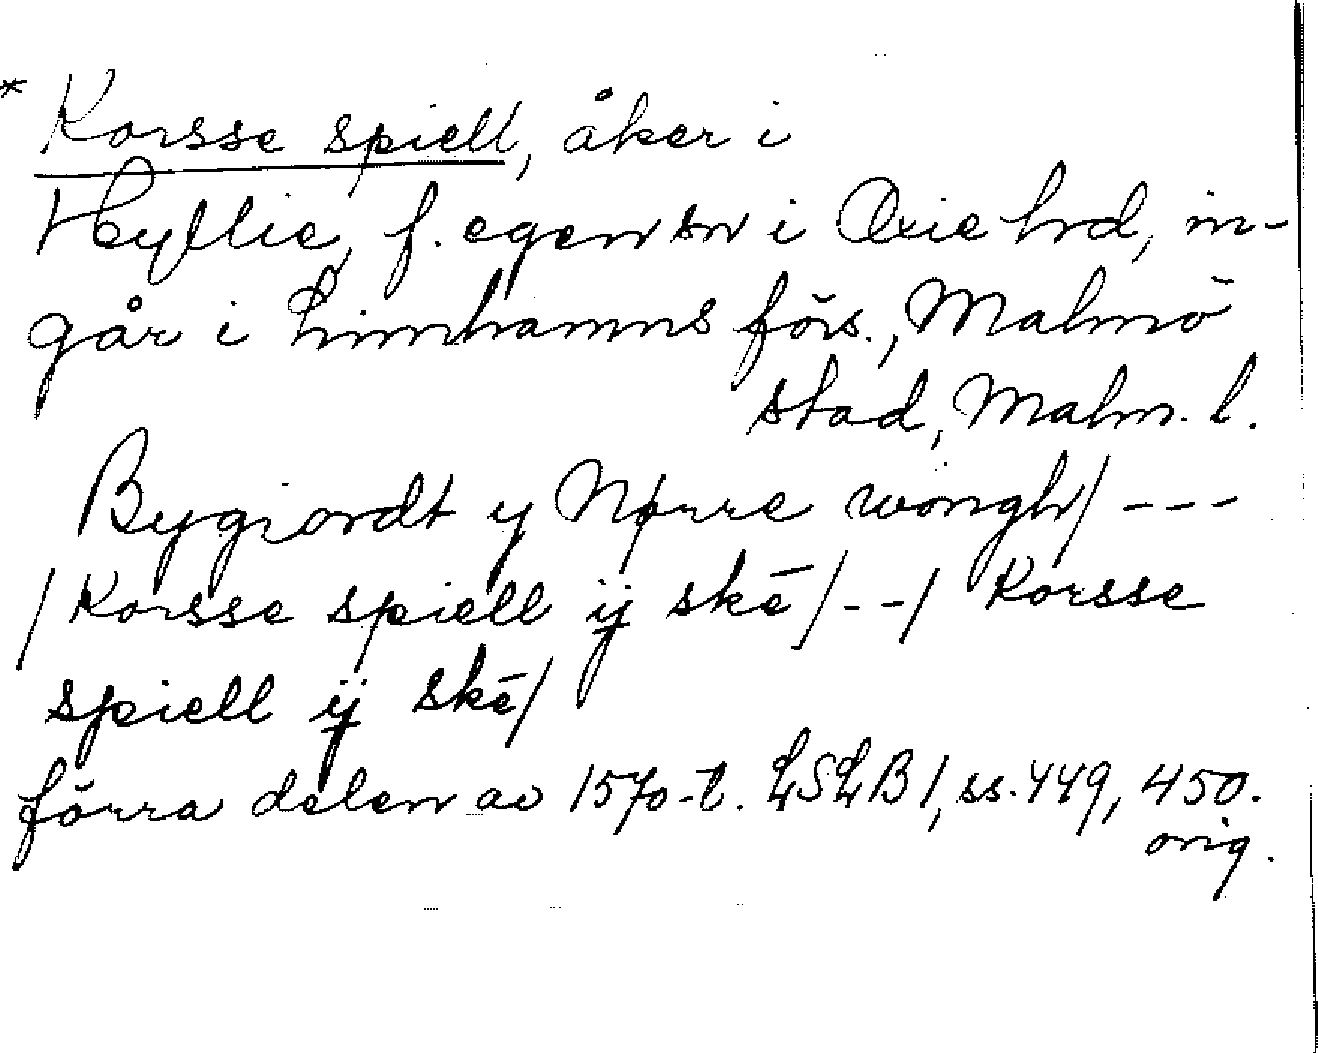 * Korsse spiell, åker i
Hyllie, f. egen sn i Oxie hd, in-
går i Limhamns förs., Malmö
stad, Malm. l.
Bygiordt y Nørre wongh/ ---
/Korsse spiell ij skē/--/ Korsse
spiell ij skē/
förra delen av 1570-t. LSLB 1, ss. 449, 450.
orig.